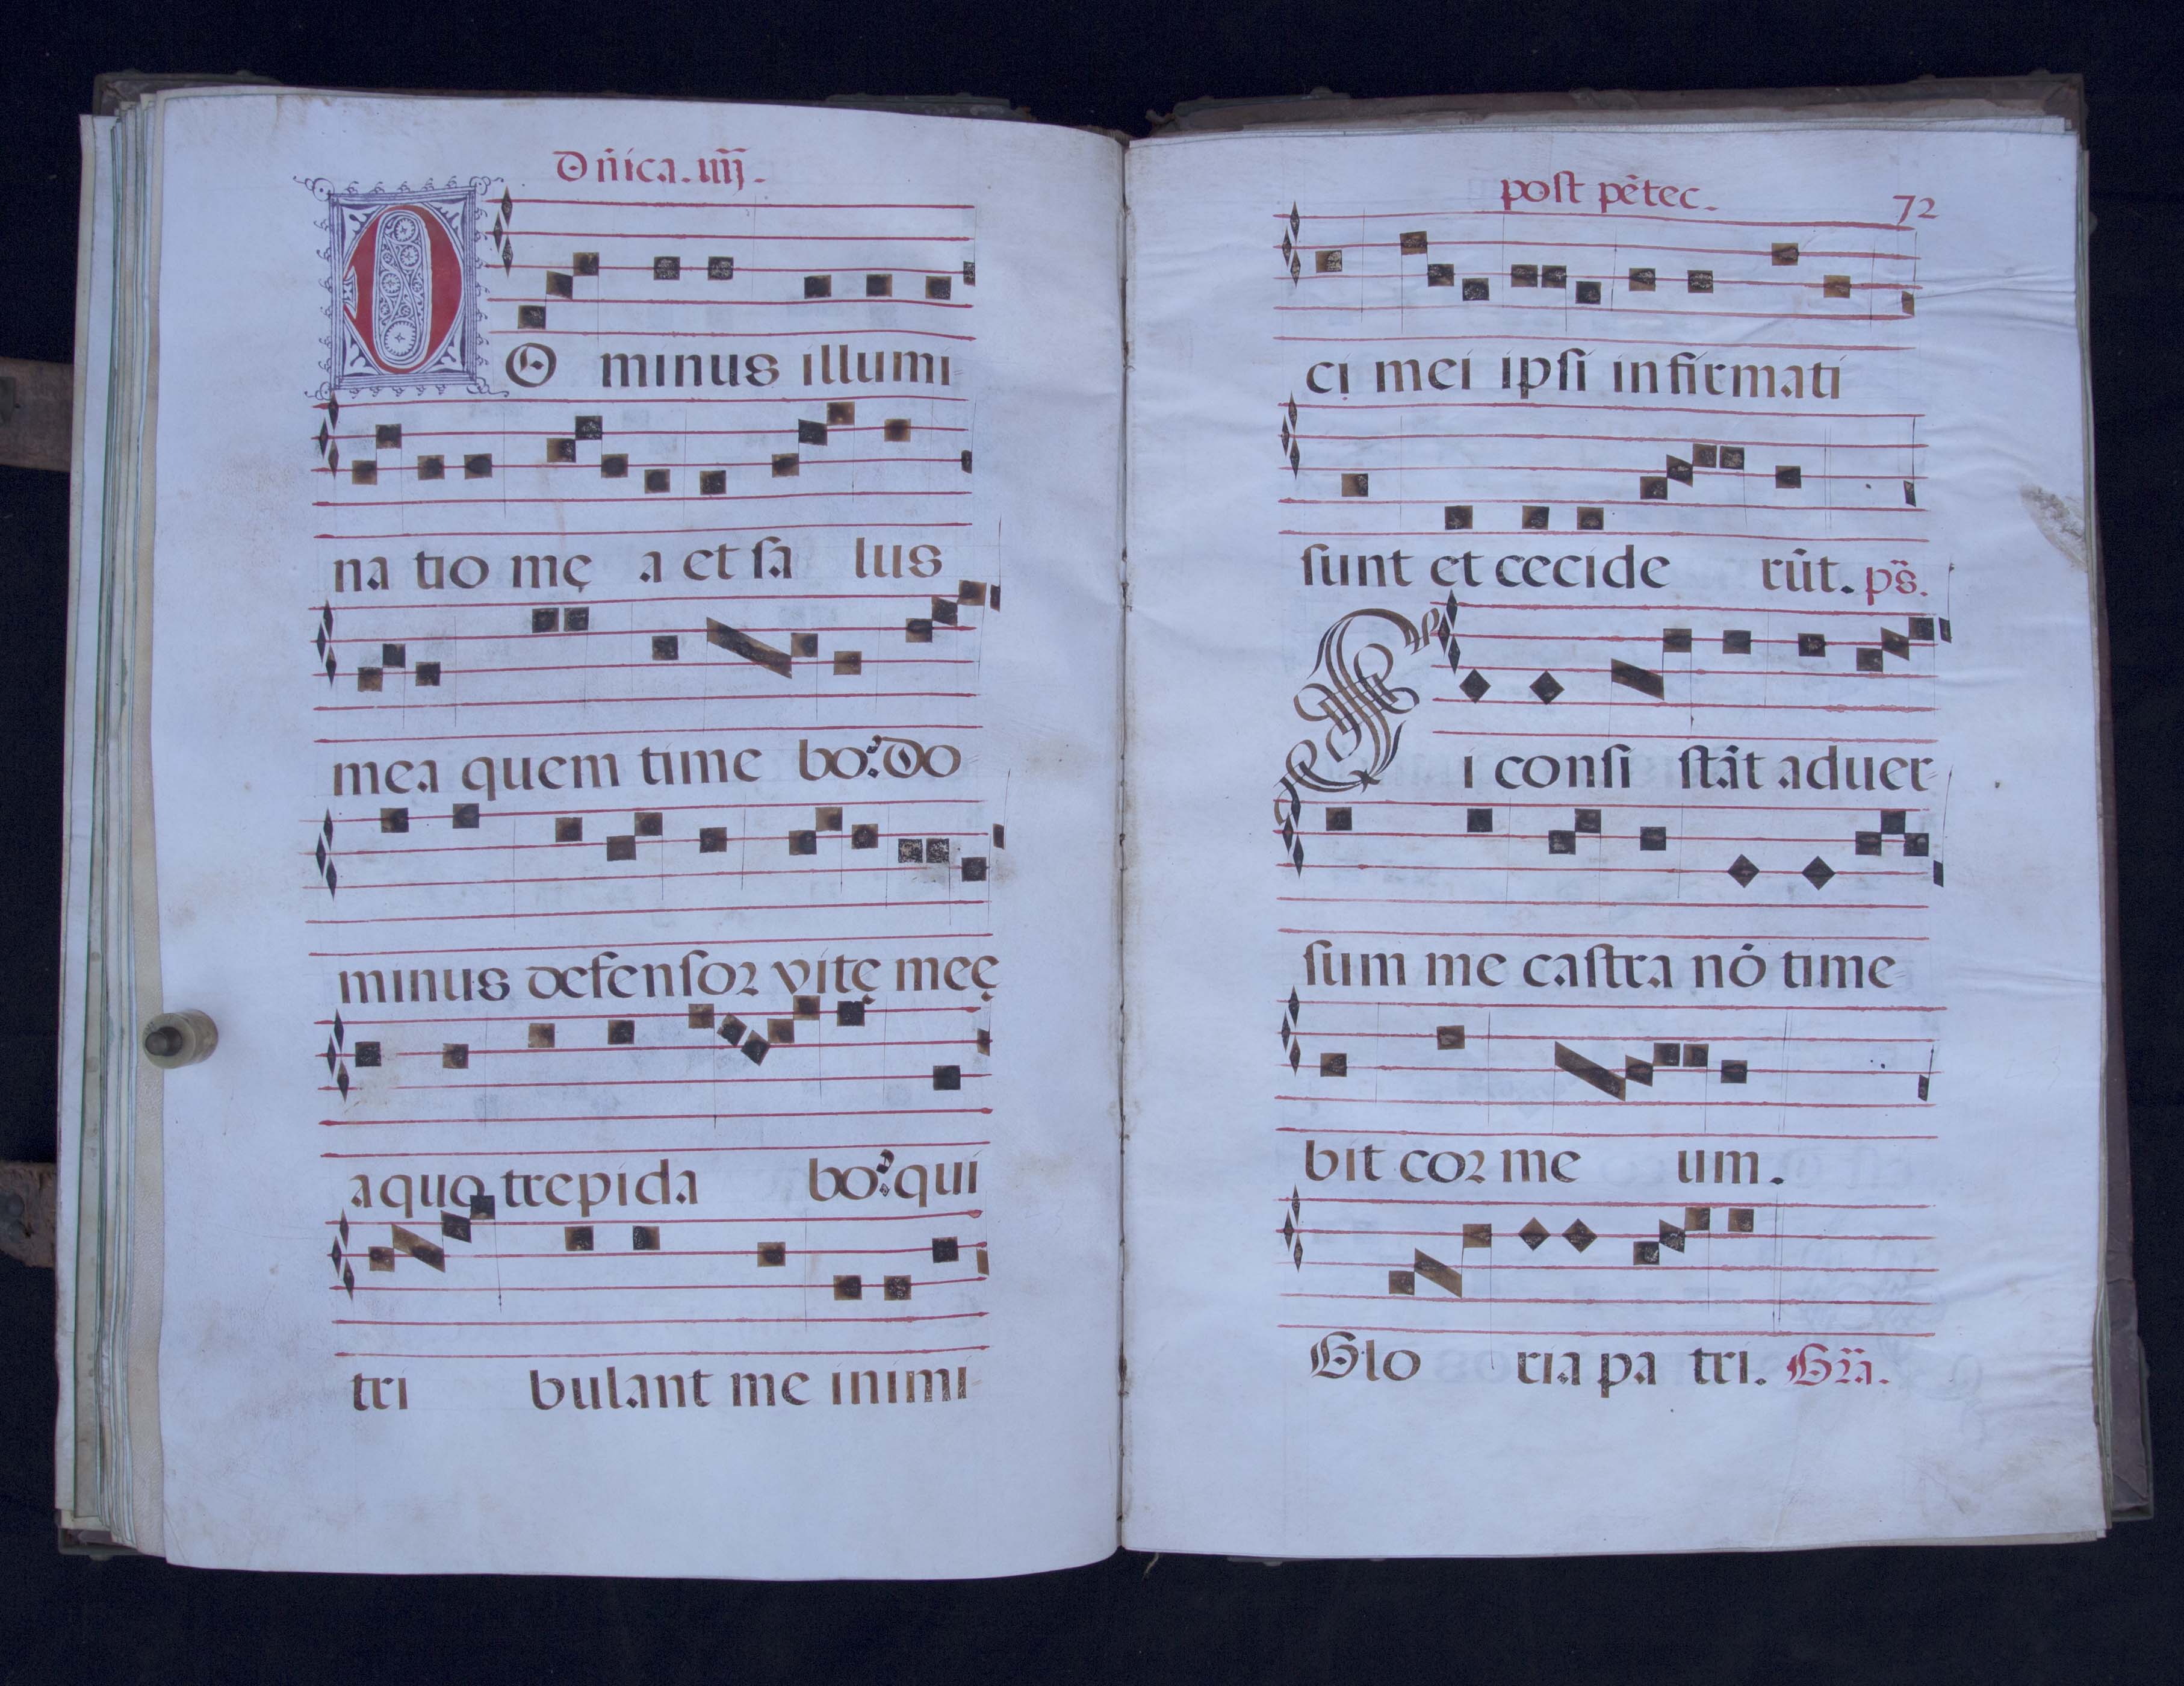 Dñica. iiij.
DO minus illumi
na tio mę a et ſa lus
mea quem time bo: do
minus defenſor vitę meę
a quo trepida bo: qui
tri bulant me inimi
post pẽtec.
72
ci mei ipſi infirmati
ſunt et cecide rũt. ps.
Si conſi ſtãt aduer
ſum me caſtra nõ time
bit cor me um.
Glo ria pa tri. Gr̃a.